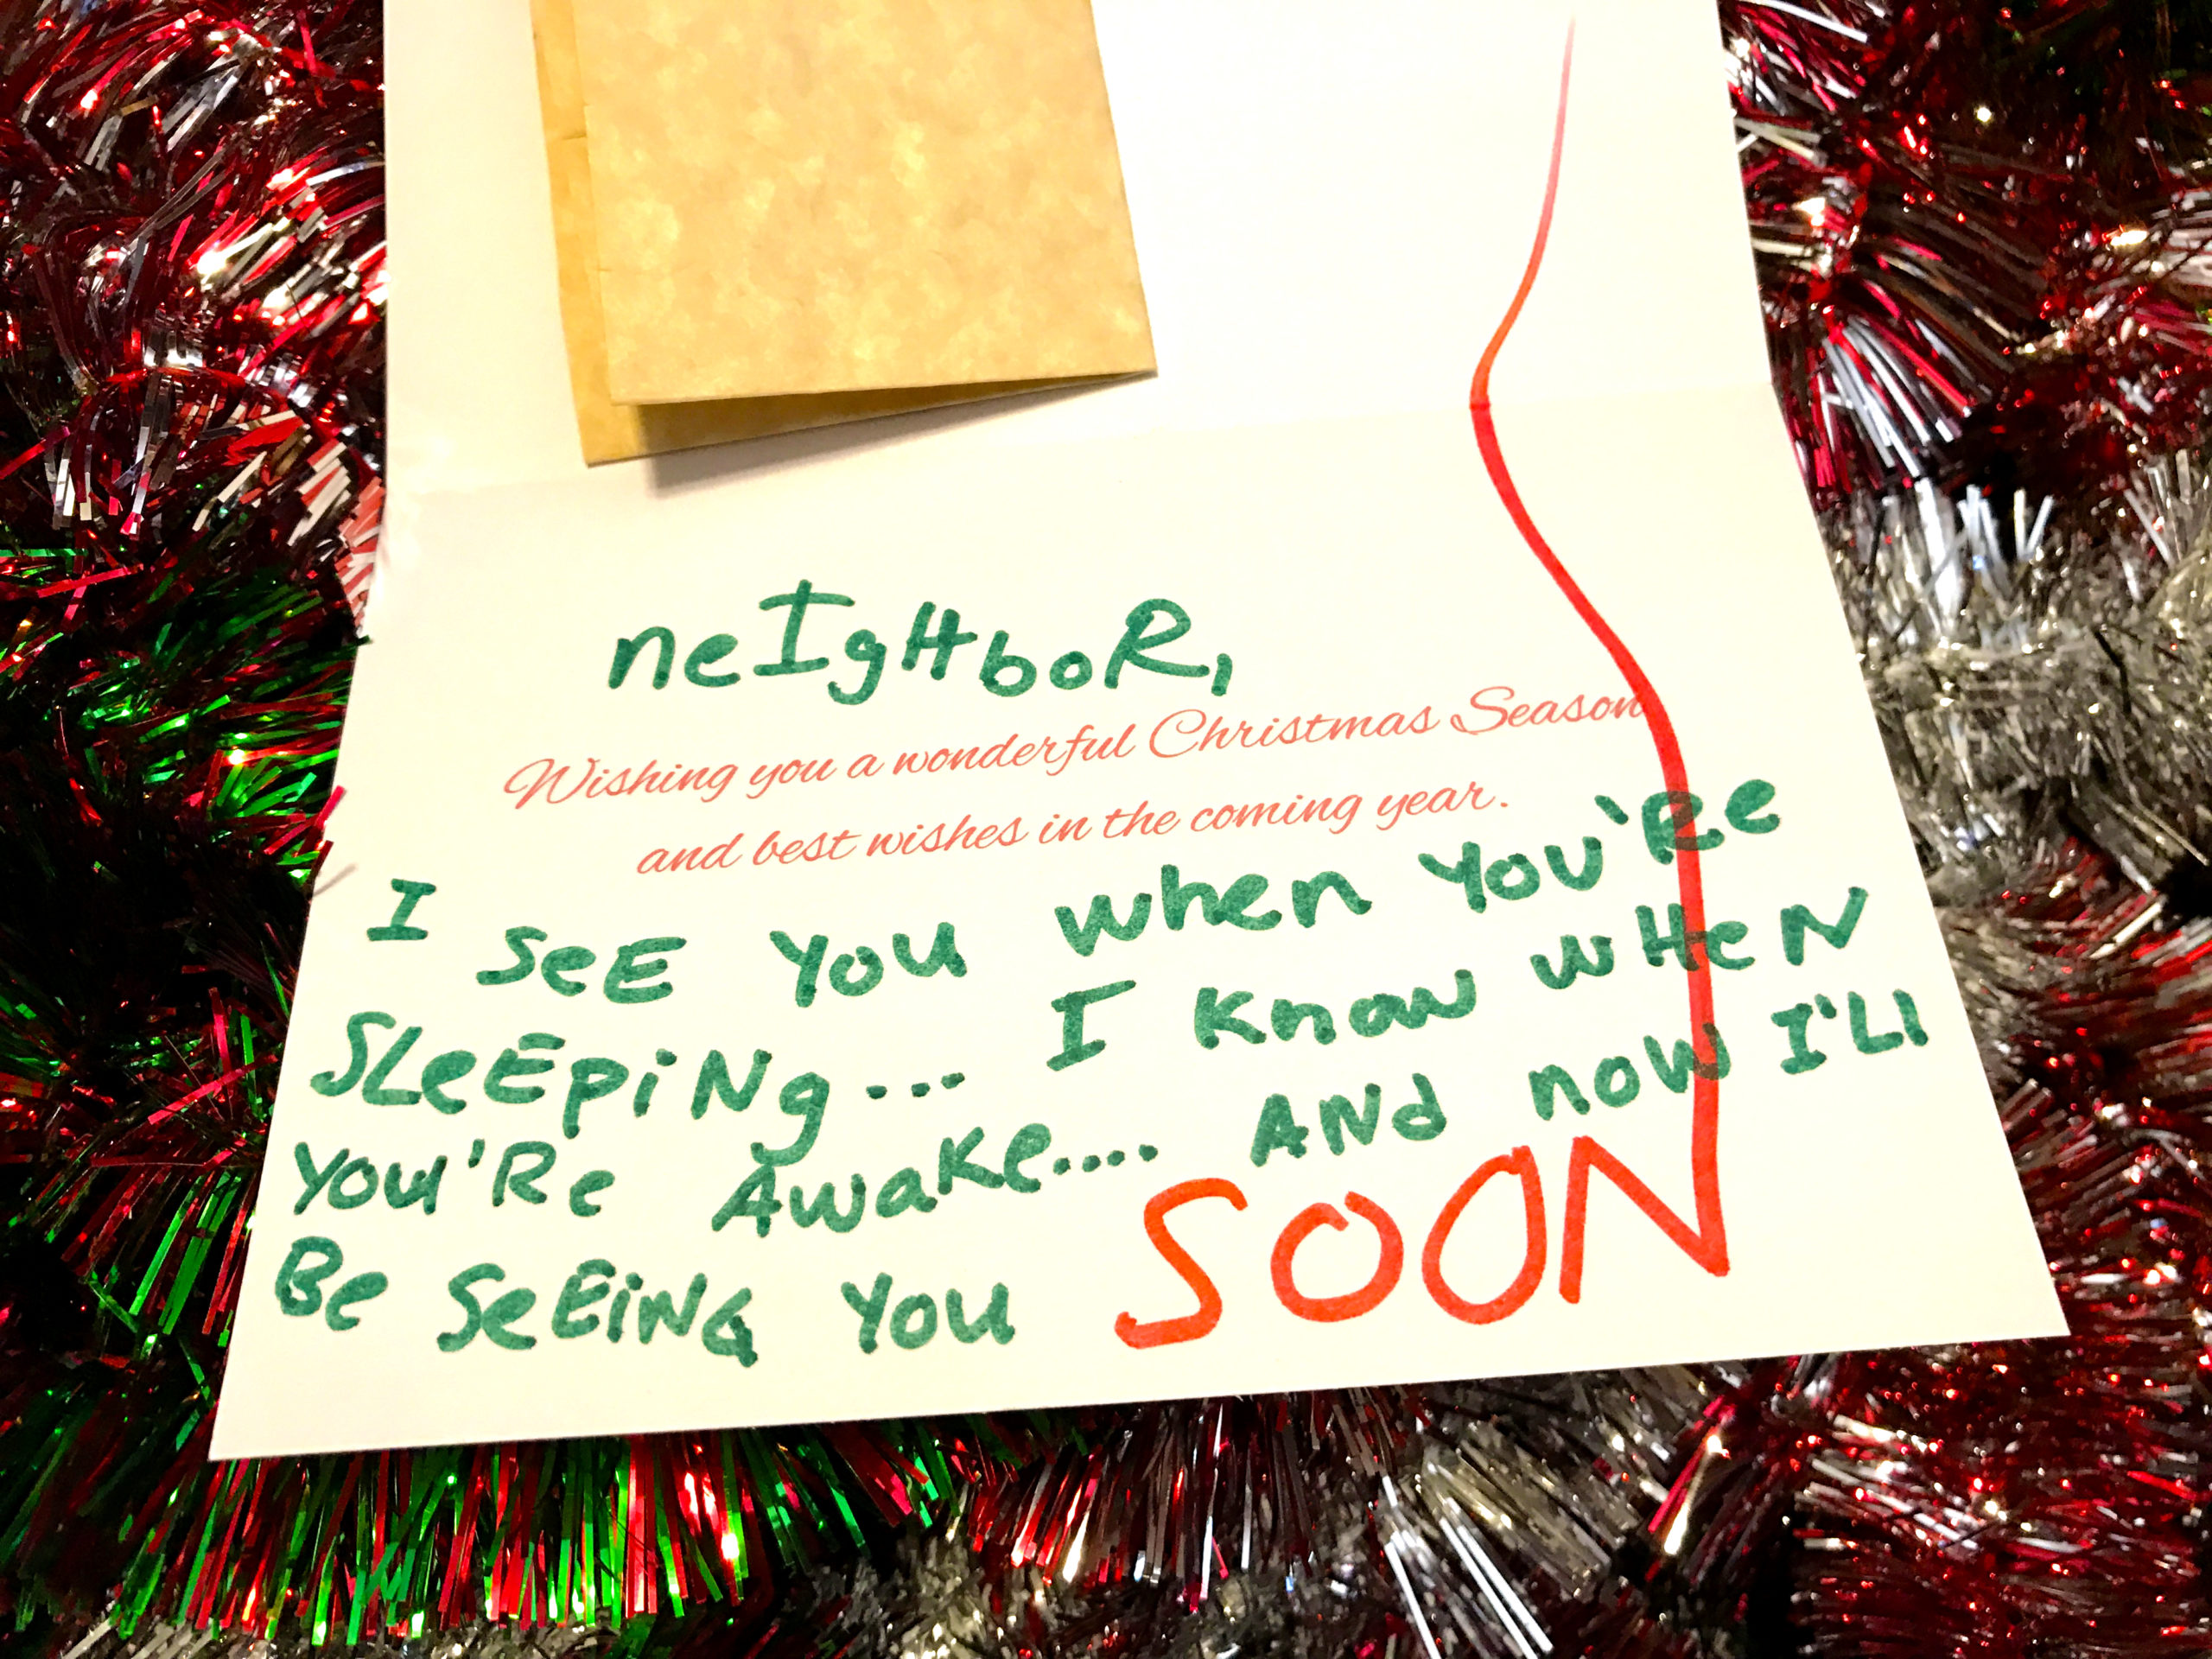 neIgHboR,
Wishing you a wonderful Christmas Season
and best wishes in the coming year.
I SeE You when You'Re
SLeEpiNg... I Know wHeN
You'Re AwaKe.... ANd noW I'Ll
Be SeEiNG You SOON